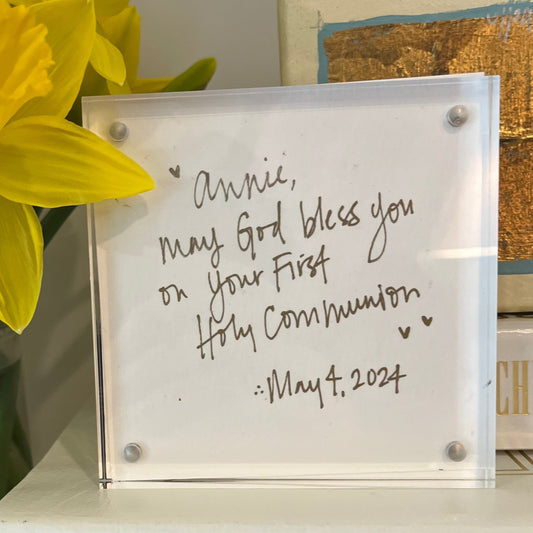 Annie,
may God bless you
on your First
Holy Communion
May 4, 2024
CH